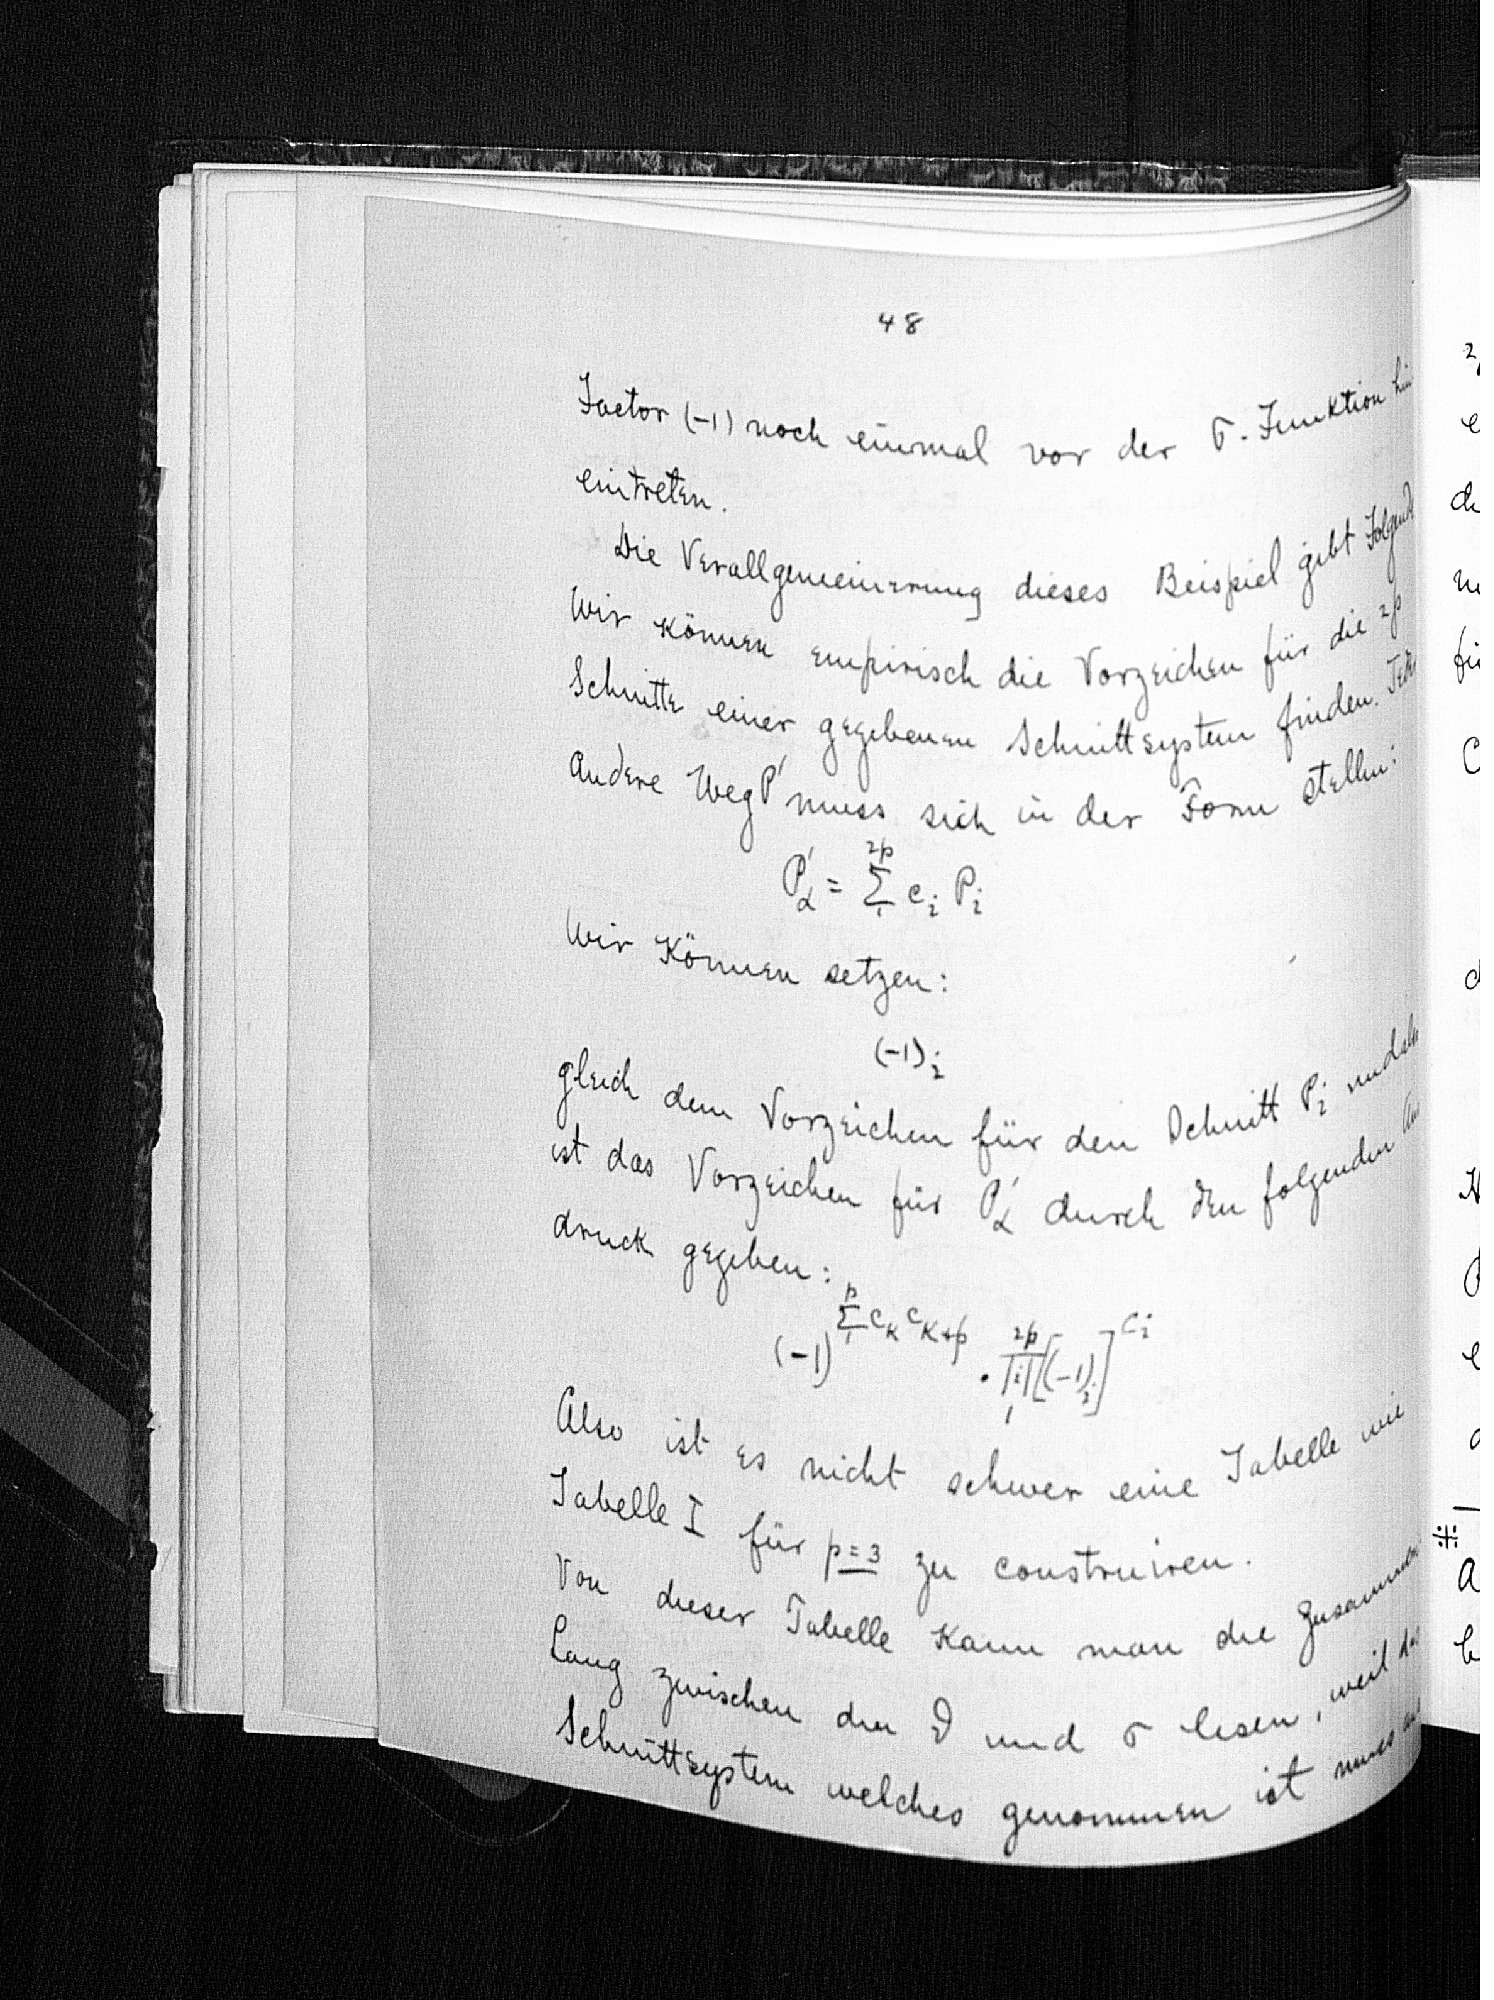 48
Factor (-1) noch einmal vor der σ-Funktion hin
eintreten.
Die Verallgemeinerung dieses Beispiel gibt Folgend
Wir können empirisch die Vorzeichen für die 2p
Schnitte einer gegebenen Schnittsystem finden. Jede
andere Weg P' muss sich in der Form stellen:
P'_α = Σ_1^{2p} c_i P_i
Wir können setzen:
(-1)_i
gleich dem Vorzeichen für den Schnitt P_i
ist das Vorzeichen für P'_α durch den folgenden Aus
druck gegeben:
(-1)^{Σ_1^p c_K c_{K+p}} · Π_1^{2p} i [(-1)_i]^{c_i}
Also ist es nicht schwer eine Tabelle wie
Tabelle I für p=3 zu construiren.
Von dieser Tabelle kann man die Zusammen
lang zwischen den ϑ und σ lesen, weil das
Schnittsystem welches genommen ist muss